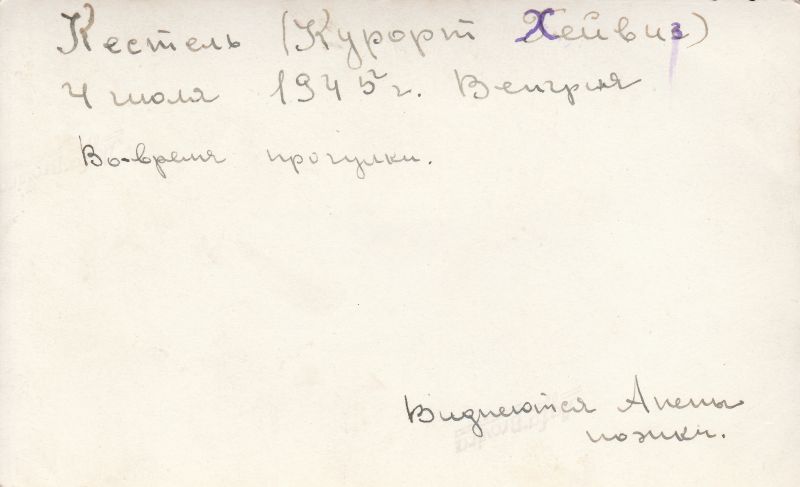 Кестель (Курорт Хейвиз)
4 июля 1945 г. Венгрия
Во-время прогулки.
Виднеются Анены
ножки.